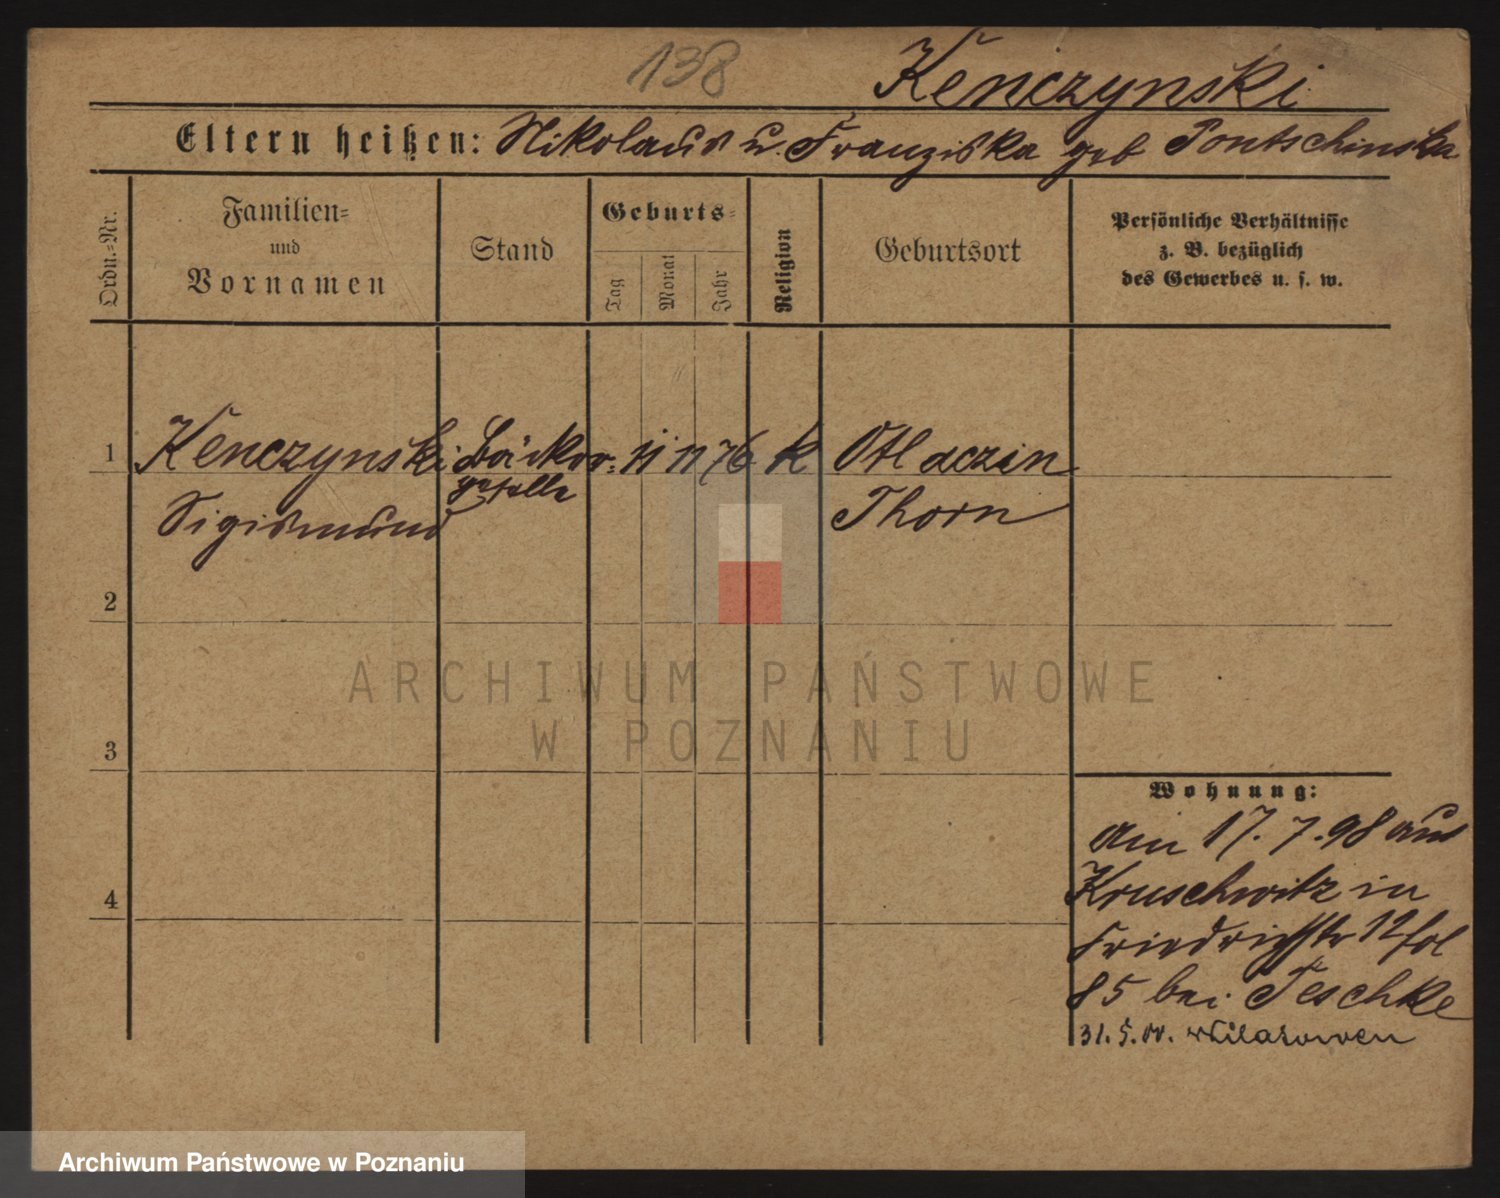 138
Kenczynski
Eltern heißen: Nikolaus u. Franziska geb Pontschinska
Ordn.=Nr.
Familien=
und
Vornamen
Stand
Geburts=
Tag
Monat
Jahr
Religion
Geburtsort
Persönliche Verhältnisse
z. B. bezüglich
des Gewerbes u. s. w.
1
Kenczynski Bäcker= 11 11 76 k Otlaczin
geselle
Sigismund
Thorn
2
ARCHIWUM PAŃSTWOWE
W POZNANIU
3
Wohnung:
am 17. 7. 98 aus
Kruschwitz in
Friedrichstr 12 fol
85 bei Teschke
31. 5. 00.
4
Archiwum Państwowe w Poznaniu